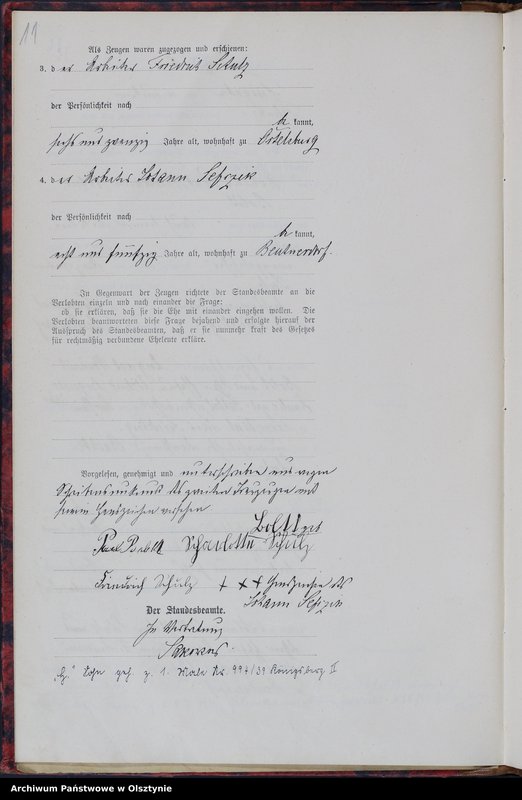 11
Als Zeugen waren zugezogen und erschienen:
3. der Arbeiter Friedrich Schulz
der Persönlichkeit nach
be kannt,
sechs und zwanzig Jahre alt, wohnhaft zu Ortelsburg
4. der Arbeiter Johann
der Persönlichkeit nach
be kannt,
acht und fünfzig Jahre alt, wohnhaft zu Beutnerdorf.
In Gegenwart der Zeugen richtete der Standesbeamte an die
Verlobten einzeln und nach einander die Frage:
ob sie erklären, daß sie die Ehe mit einander eingehen wollen. Die
Verlobten beantworteten diese Frage bejahend und erfolgte hierauf der
Ausspruch des Standesbeamten, daß er sie nunmehr kraft des Gesetzes
für rechtmäßig verbundene Eheleute erkläre.
Vorgelesen, genehmigt und unterschrieben und wegen
Schreibensunkunde des zweiten Zeugen mit
seinem Handzeichen versehen
geb
Paul Scharlotte Schulz
Friedrich Schulz +++ Handzeichen des
Johann
Der Standesbeamte.
In Vertretung
Sohn geh. z. 1. Male Nr. 994/39 Königsberg II
Archiwum Państwowe w Olsztynie